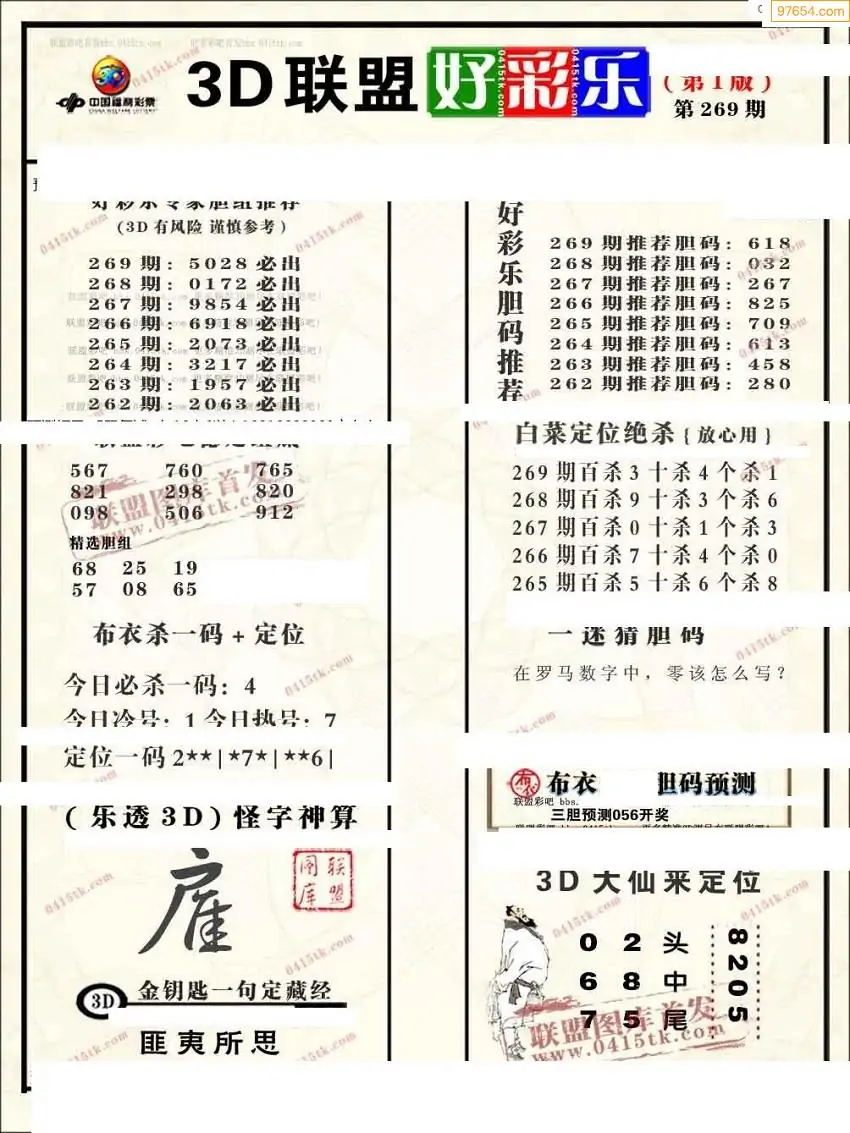 97654.com
中国福利彩票
CHINA WELFARE LOTTERY
3D联盟 好彩乐
(第1版)
第269期
好彩乐专家胆组推荐
(3D有风险 谨慎参考)
269期:5028必出
268期:0172必出
267期:9854必出
266期:6918必出
265期:2073必出
264期:3217必出
263期:1957必出
262期:2063必出
567 760 765
821 298 820
098 506 912
精选胆组
68 25 19
57 08 65
布衣杀一码+定位
今日必杀一码:4
今日冷号:1 今日热号:7
定位一码2**|*7*|**6|
(乐透3D)怪字神算
联盟图库
3D 金钥匙一句定藏经
匪夷所思
好彩乐胆码推荐
269期推荐胆码:618
268期推荐胆码:032
267期推荐胆码:267
266期推荐胆码:825
265期推荐胆码:709
264期推荐胆码:613
263期推荐胆码:458
262期推荐胆码:280
白菜定位绝杀{放心用}
269期百杀3十杀4个杀1
268期百杀9十杀3个杀6
267期百杀0十杀1个杀3
266期百杀7十杀4个杀0
265期百杀5十杀6个杀8
一迷猜胆码
在罗马数字中，零该怎么写?
布衣 胆码预测
联盟彩吧 bbs.
三胆预测056开奖
3D大仙来定位
0 2 头
6 8 中
7 5 尾
8205
联盟图库首发
www.0415tk.com